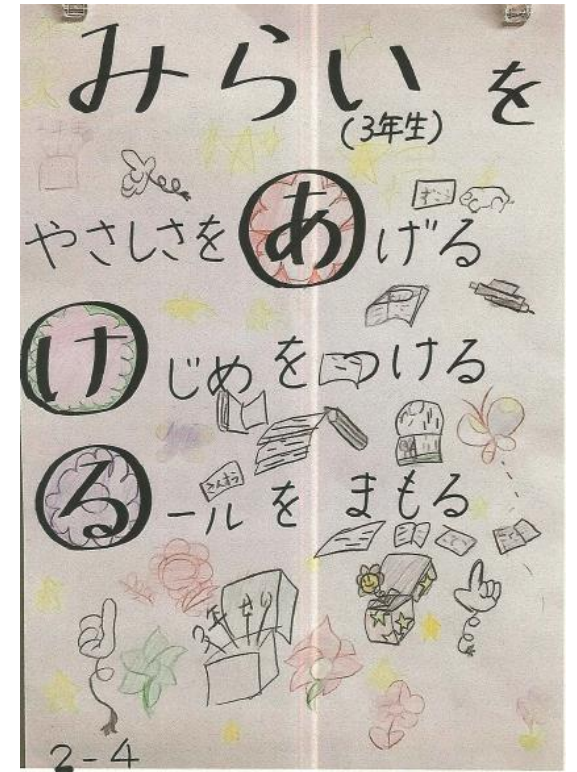 みらいを
(3年生)
やさしさをあげる
けじめをつける
ルールをまもる
さんすう
3年生
2-4